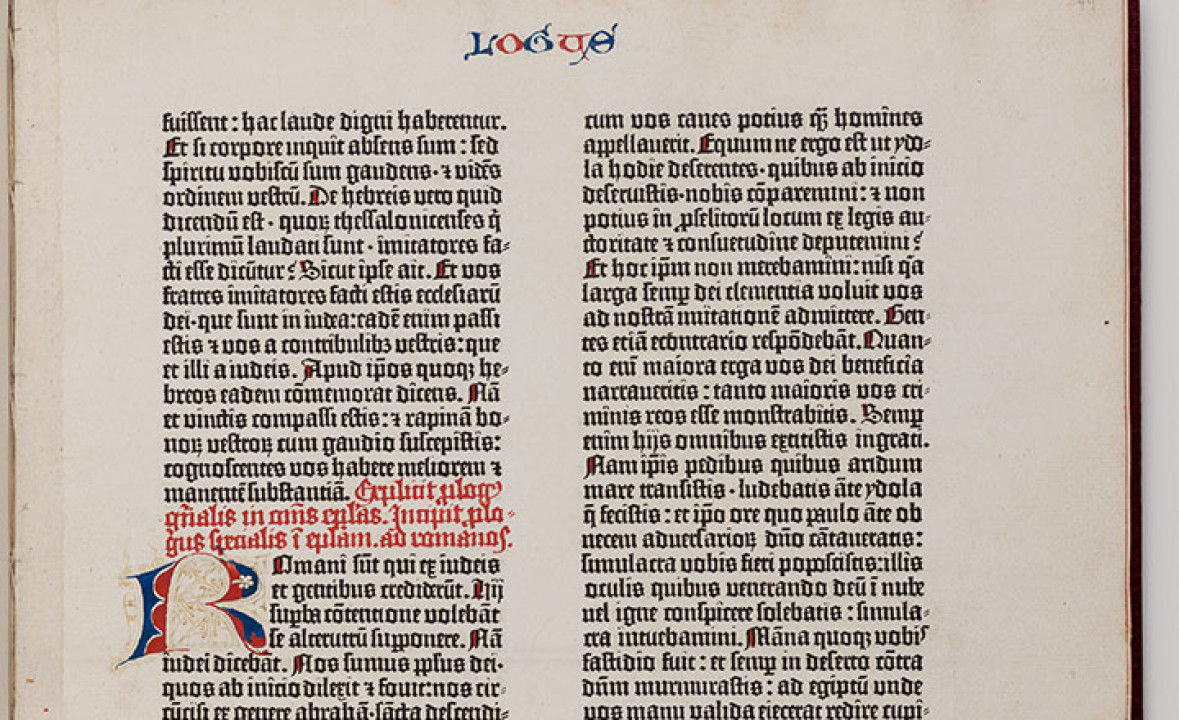 LOGUS
fuissent : hac laude digni haberentur.
Et si corpore inquit absens sum : sed
spiritu vobiscū sum gaudens · ⁊ vidēs
ordinem vestrū. De hebreis vero quid
dicendū est · quoꝝ thessalonicenses q̄
plurimū laudati sunt · imitatores fa-
cti esse dicūtur? Sicut ipse ait. Et vos
fratres imitatores facti estis ecclesiarū
dei · que sunt in iudea : eadē enim passi
estis ⁊ vos a contribulibꝫ vestris : que
et illi a iudeis. Apud ip̄os quoqꝫ he-
breos eadem cōmemorat dicens. Nā
et vinctis compassi estis : ⁊ rapinā bo-
noꝝ vestroꝝ cum gaudio suscepistis :
cognoscentes vos habere meliorem ⁊
manentē substantiā. Explicit ꝓlogꝰ
gn̄alis in om̄s ep̄las. Incipit ꝓlo-
gus specialis ī ep̄lam. ad romanos.
Romani sūt qui ex iudeis
et gentibus crediderūt. Hij
supꝑba cōtentione volebāt
se alterutrū supponere. Nā
iudei dicebāt. Nos sumus ppl̄us dei ·
quos ab inicio dilexit ⁊ fouit : nos cir-
cūcisi ex genere abrahā · sācta descendi-
cum vos canes potius qꝫ̄ homines
appellaverit. Equum ne ergo est ut ydo-
la hodie deserentes · quibus ab inicio
deseruistis · nobis cōparemini : ⁊ non
potius in ꝓselitorū locum ex legis au-
ctoritate ⁊ consuetudine deputemini?
Et hoc ip̄m non merebamini : nisi q̄a
larga semꝑ dei clementia voluit vos
ad nostrā imitationē admittere. Gen-
tes etiā econtrario respōdebāt. Quan-
to eni maiora erga vos dei beneficia
narraveritis : tanto maioris vos cri-
minis reos esse monstrabitis. Semꝑ
enim hijs omnibus extitistis ingrati.
Nam ip̄is pedibus quibus aridum
mare transistis · ludebatis āte ydola
q̄ fecistis : et ip̄o ore quo paulo āte ob
necem adversarioꝝ dn̄o cātaveratis :
simulacra vobis fieri poposcistis : illis
oculis quibus venerando deū ī nube
vel igne conspicere solebatis : simula-
cra intuebamini. Māna quoqꝫ vobis
fastidio fuit : et semꝑ in deserto cōtra
dn̄m murmurastis : ad egiptū unde
vos manu valida eiecerat redire cupi-